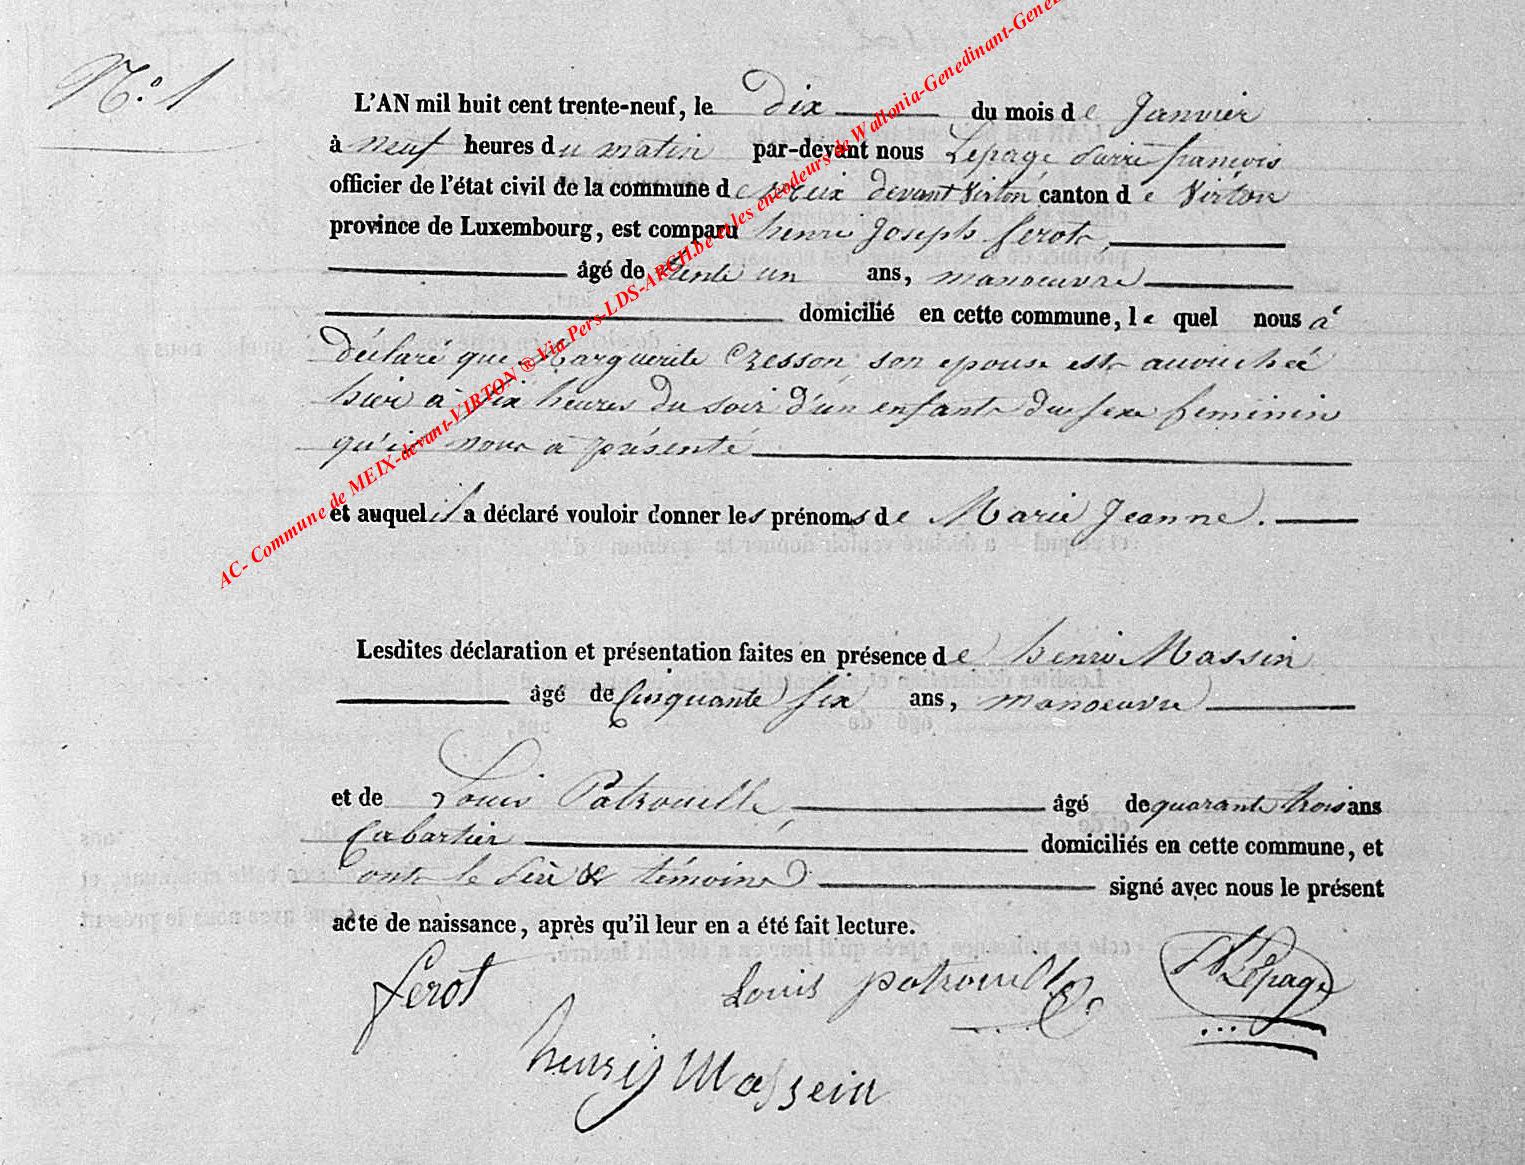 N.° 1
L'AN mil huit cent trente-neuf, le dix du mois de Janvier
à neuf heures du matin par-devant nous Lepage pierre françois
officier de l'état civil de la commune de Meix devant Virton canton de Virton
province de Luxembourg, est comparu henri Joseph ferot,
âgé de trente un ans, manoeuvre
domicilié en cette commune, le quel nous á
déclaré que Marguerite Cresson, son epouse est accouchée
hier à six heures du soir d'un enfant du sexe feminin
qu'il nous a présenté
et auquel il a déclaré vouloir donner les prénoms de Marie Jeanne.
Lesdites déclaration et présentation faites en présence de henri Massin
âgé de Cinquante six ans, manoeuvre
et de Louis Patrouille, âgé de quarante trois ans
Cabartier domiciliés en cette commune, et
ont le père & témoins signé avec nous le présent
acte de naissance, après qu'il leur en a été fait lecture.
ferot Louis patrouille Lepage
henri Massein
AC- Commune de MEIX-devant-VIRTON ® Via Pers-LDS-ARCH.be et les encodeurs de Wallonia-Genedinant-Gene